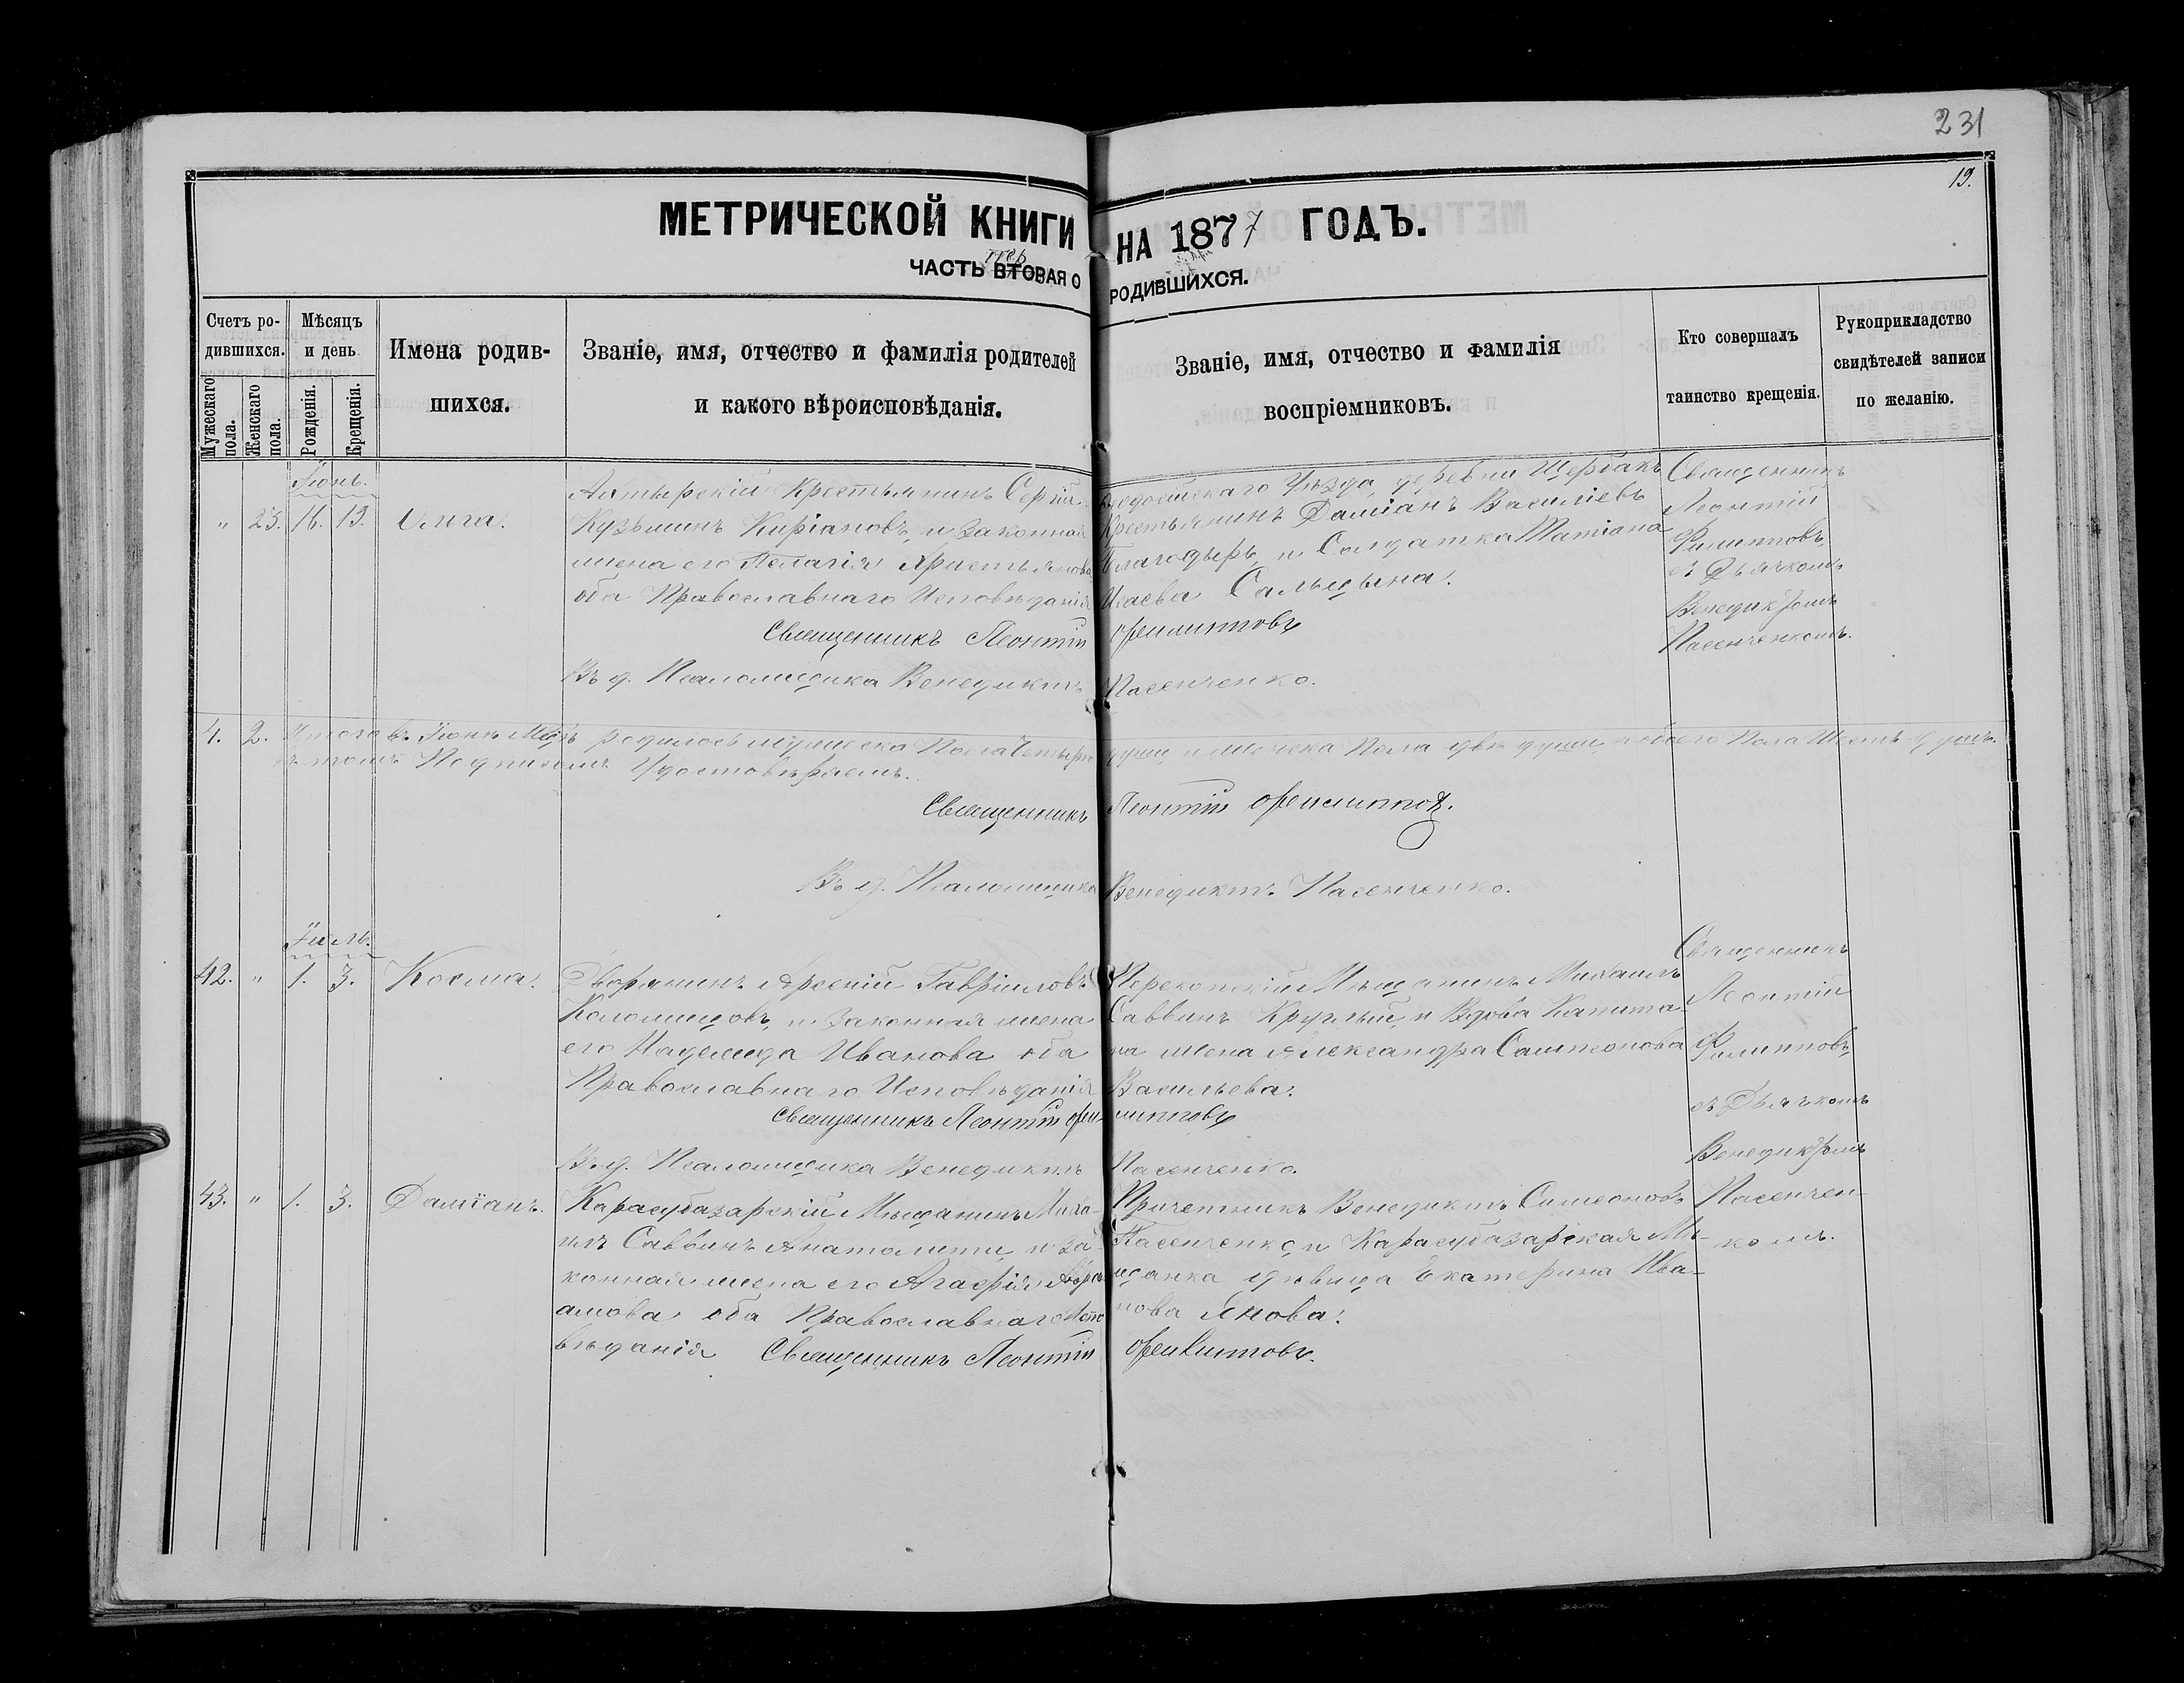 231
19.
МЕТРИЧЕСКОЙ КНИГИ НА 1877 ГОДЪ.
пер
ЧАСТЬ ВТОРАЯ О РОДИВШИХСЯ.
Счетъ ро-
дившихся.
Мужескаго пола.
Женскаго пола.
Мѣсяцъ
и день
Рожденія.
Крещенія.
Имена родив-
шихся.
Званіе, имя, отчество и фамилія родителей
и какого вѣроисповѣданія.
Званіе, имя, отчество и фамилія
воспріемниковъ.
Кто совершалъ
таинство крещенія.
Рукоприкладство
свидѣтелей записи
по желанію.
Іюнь.
" 23. 16. 19. Ольга.
Ахтырскій Крестьянинъ Сергій
Кузьминъ Киріановъ, и законная
жена его Пелагія Христьянова
оба Православнаго Исповѣданія
Священникъ Леонтій Филипповъ
Въ д. Псаломщика Венедиктъ Пасенченко.
Ѳеодосійскаго Уѣзда деревни Шербакъ
Крестьянинъ Даміанъ Василіевъ
Благодыръ, и Солдатка Татіана
Исаева Сальцына.
Священникъ
Леонтій
Филипповъ,
съ Дьячкомъ
Венедиктомъ
Пасенченкомъ.
4. 2. Итого въ Іюнѣ Мцѣ родилось мужеска Пола четыре души и женска Пола двѣ души, а обоего Пола Шесть душъ.
въ томъ Подписомъ Удостовѣряемъ.
Священникъ Леонтій Филипповъ.
Въ д. Псаломщика Венедиктъ Пасенченко.
Іюль.
42. " 1. 3. Косма.
Дворянинъ Арсеній Гавріиловъ
Коломицовъ, и законная жена
его Надежда Иванова оба
Православнаго Исповѣданія
Священникъ Леонтій Филипповъ
Въ д. Псаломщика Венедиктъ Пасенченко.
Перекопскій Мѣщанинъ Михаилъ
Саввинъ Круглый, и Вдова Капита-
на жена Александра Сампсонова
Васильева.
Священникъ
Леонтій
Филипповъ,
съ Дьячкомъ
Венедиктомъ
Пасенчен-
комъ.
43. " 1. 3. Даміанъ.
Карасубазарскій Мѣщанинъ Миха-
илъ Саввинъ Анатолити, и За-
конная жена его Агафія Авра-
амова оба Православнаго Испо-
вѣданія Священникъ Леонтій Филипповъ.
Причетникъ Венедиктъ Симеоновъ
Пасенченко, и Карасубазарская Мѣ-
щанка дѣвица Екатерина Ива-
нова Янова.